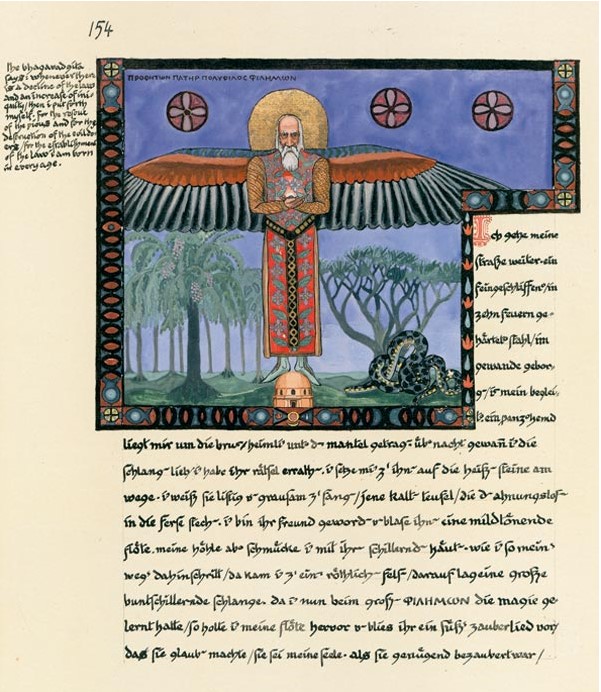 154
the bhagavadgita
says: whenever there
is a decline of the law
and an increase of ini-
quity/then i put forth
myself. for the rescue
of the pious and for the
destruction of the evildo-
ers/for the establishment
of the law i am born
in every age.
ΠΡΟΦΗΤΩΝ ΠΑΤΗΡ ΠΟΛΥΦΙΛΟΣ ΦΙΛΗΜΩΝ
Ich gehe meine
straße weiter. ein
feingeschliffen/in
zehn feuern ge-
härtet stahl/im
gewande gebor-
g/ist mein beglei-
t. ein panzerhemd
liegt mir um die brust/heimli unt d mantel getrag. üb nacht gewan i die
schlang lieb/i habe ihr rätsel errath. i setze mi z ihn auf die heiß steine am
wege. i weiß sie listig u grausam z fang/jene kalt teufel/die d ahnungslos
in die ferse stech. i bin ihr freund geword u blase ihn eine mildtönende
flöte. meine höhle ab schmücke i mit ihr schillernd häut. wie i so mein
weg dahinschritt/da kam i z ein röthlich fels/darauf lag eine große
buntschillernde schlange. da i nun beim groß ΦΙΛΗΜΩΝ die magie ge-
lernt hatte/so holte i meine flöte hervor u blies ihr ein süß zauberlied vor/
das sie glaub machte/sie sei meine seele. als sie genügend bezaubert war/